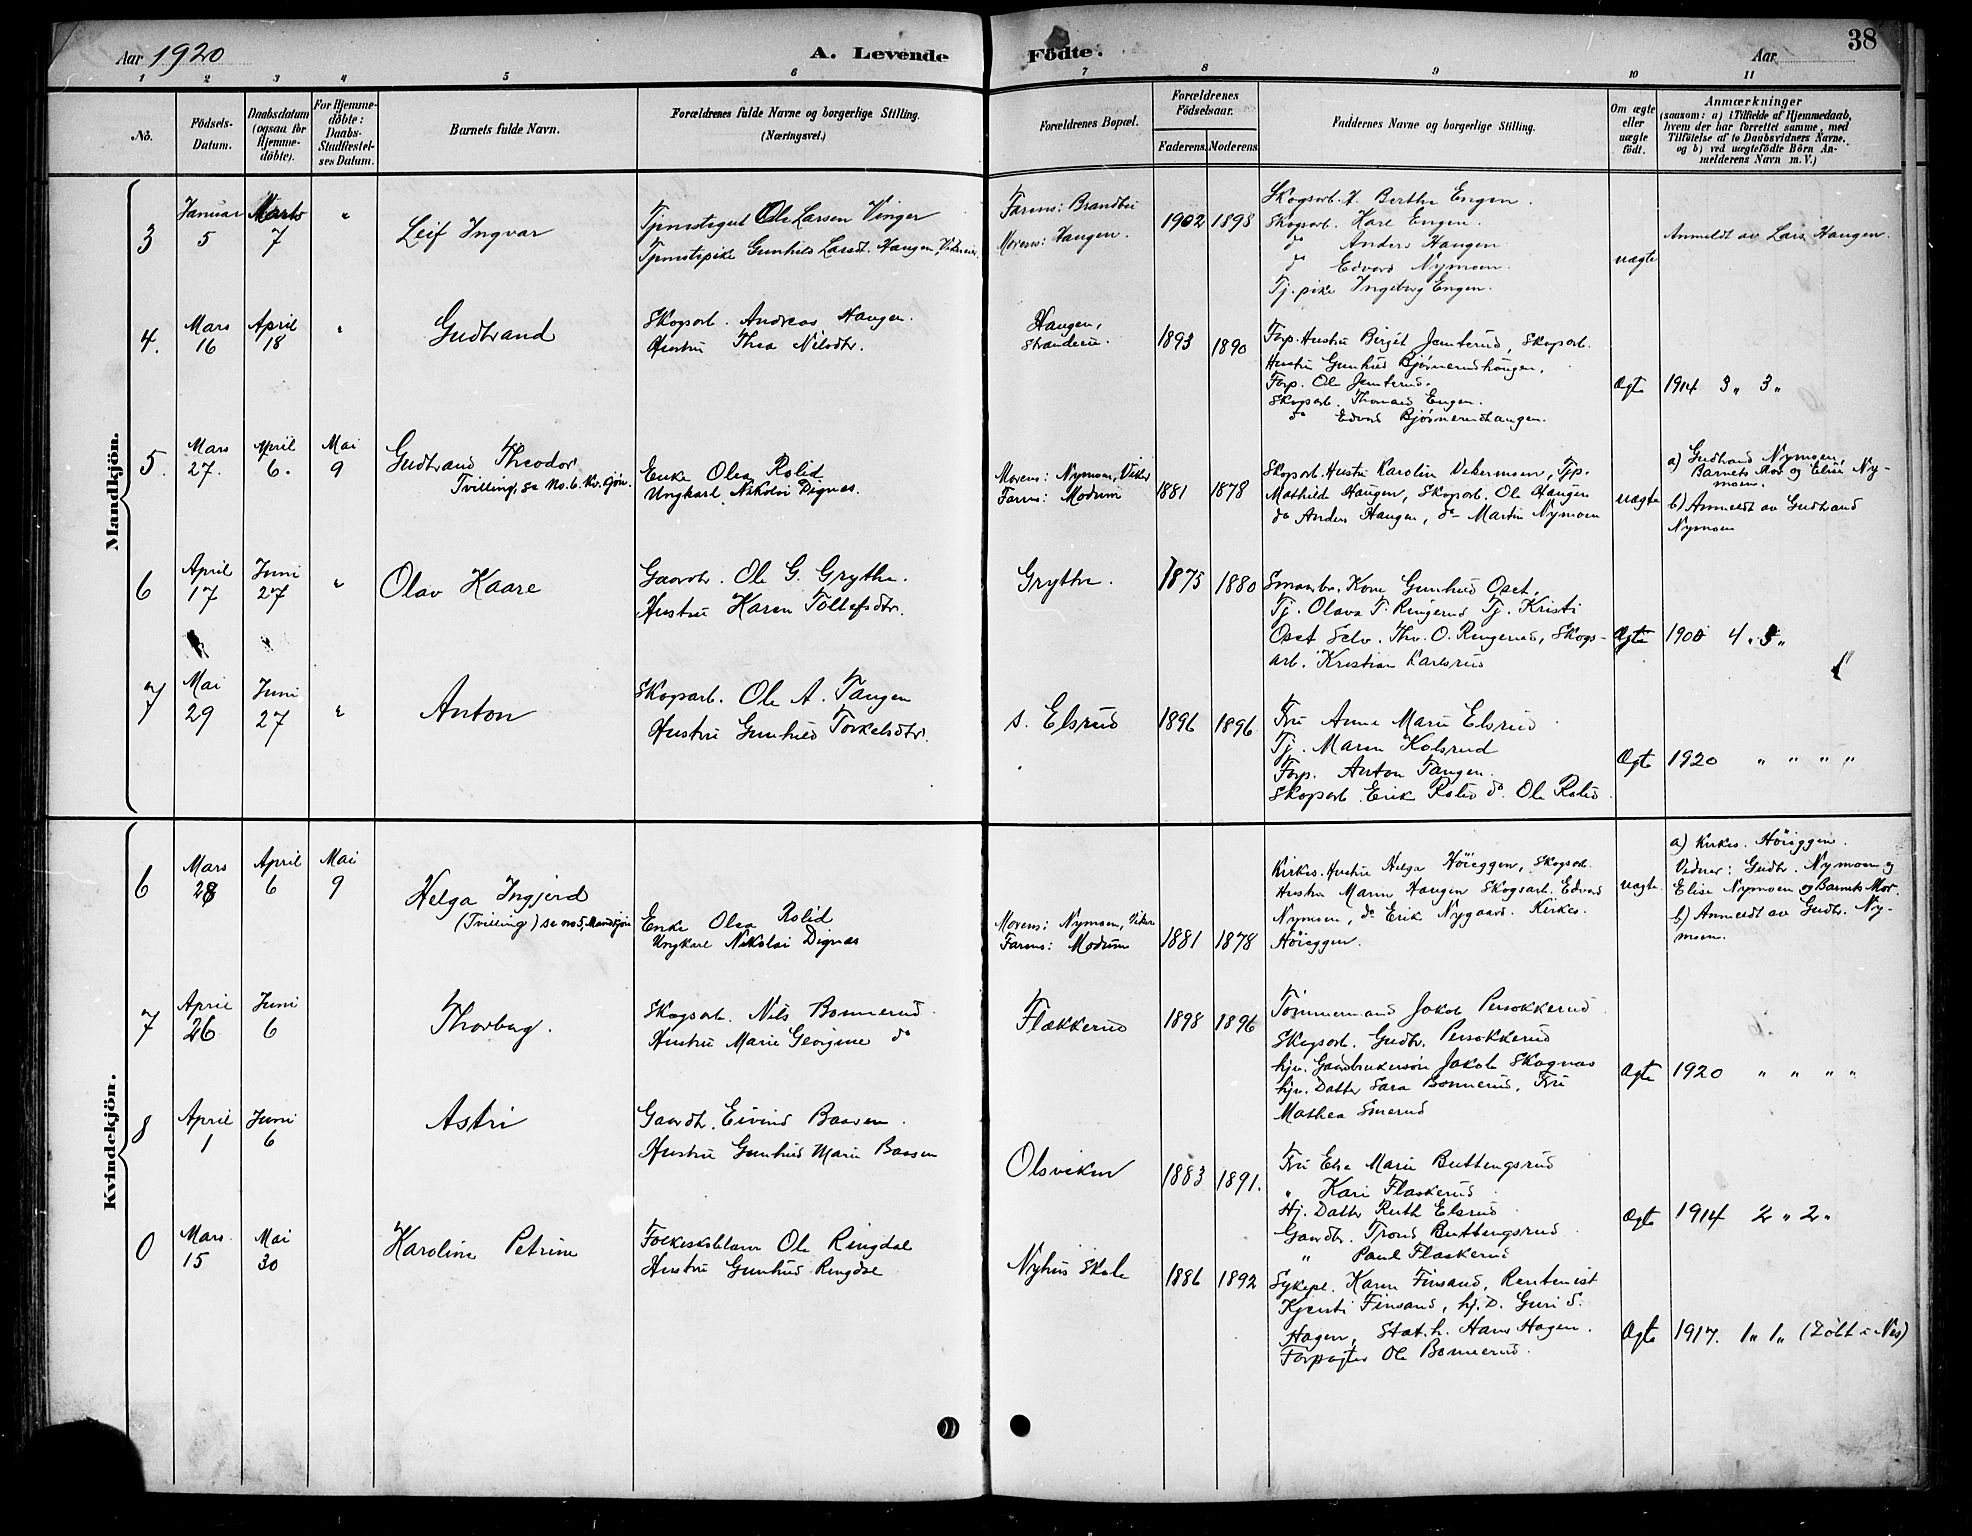 Aar 1920
A. Levende Födte.
Aar
38
1 2 3 4 5 6 7 8 9 10 11
No.
Födsels-
Datum.
Daabsdatum
(ogsaa for
Hjemme-
döbte).
For Hjemme-
döbte:
Daabs-
Stadfæstel-
ses Datum.
Barnets fulde Navn.
Forældrenes fulde Navne og borgerlige Stilling.
(Næringsvei.)
Forældrenes Bopæl.
Forældrenes
Födselsaar.
Faderens. Moderens.
Faddernes Navne og borgerlige Stilling.
Om ægte
eller
uægte
födt.
Anmærkninger
(saasom: a) i Tilfælde af Hjemmedaab,
hvem der har forrettet samme, med
Tilföielse af to Daabsvidners Navne.
og b) ved uægtefödte Börn An-
melderens Navn m. V.)
Mandkjön.
3
Januar
5
Marts
7
"
Leif Ingvar
Tjenestegut Ole Larsen Vinger
Tjenestepike Gunhild Larsdt. Haugen, Vikersein
Farens: Brandbu
Morens: Haugen.
1902 1898
Skogsarb. H. Berthe Engen.
Skogsarb. Karl Engen.
do Anders Haugen
do Edvard Nymoen.
Tj. pike Ingeborg Engen.
uægte
Anmeldt av Lars Haugen.
4.
Mars
16
April
18
"
Gudbrand
Skogsarb. Andreas Haugen.
Hustru Thea Nilsdtr.
Haugen,
1893 1890
Forp. Hustru Birgit Jemterud, Skogsarb.
Hustru Gunhild Bjørnerudhaugen,
Forp. Ole Jemterud.
Skogsarb. Thomas Engen.
do Edvard Bjørnerudhaugen.
Ægte
1914 3 " 3 "
5.
Mars
27.
April
6.
Mai
9
Gudbrand Theodor
Tvilling, se No. 6. Kv.kjøn.
Enke Olea Rolid
Ungkarl Nikolai Dignæs.
Morens: Nymoen, Viker
Farens: Modum
1881 1878
Skogsarb. Hustru Karoline Vikermoen, Tjp.
Mathilde Haugen, Skogsarb. Ole Haugen
do Anders Haugen, do Martin Nymoen
uægte
a) Gudbrand Nymoen,
Barnets Mor og Elise Ny-
moen.
b) Anmeldt av Gudbrand
Nymoen
6
April
17
Juni
27
"
Olav Kaare
Gaardbr. Ole G. Grythe.
Hustru Karen Tollefsdtr.
Grythe.
1875 1880
Smaabr. Kone Gunhild Oset,
Tj. Olava T. Ringerud Tj. Kristi
Oset Selv. Thv. O. Ringerud, Skogs-
arb. Kristian Karlsrud
Ægte
1900 4 " 3 "
7
Mai
29
Juni
27
"
Anton
Skogsarb. Ole A. Tangen
Hustru Gunhild Torkelsdtr.
s. Elsrud
1896 1896
Fru Anne Marie Elsrud
Tj. Maren Kolsrud
Forp. Anton Tangen.
Skogsarb. Erik Rolid do. Ole Rolid.
Ægte
1920 " " " "
Kvindekjön.
6
Mars
28
April
6
Mai
9
Helga Ingjerd
(Tvilling) se no 5, Mandkjøn
Enke Olea Rolid
Ungkarl Nikolai Dignæs
Morens: Nymoen, Viker
Farens: Modum
1881 1878
Kirkes. Hustru Helga Höieggen, Skogsarb.
Hustru Maren Haugen Skogsarb. Edvard
Nymoen, do Erik Nygaard. Kirkes.
Höieggen.
uægte.
a) Kirkes. Höieggen.
Vidner: Gudbr. Nymoen og
Elise Nymoen og Barnets Mor.
b) Anmeldt av Gudbr. Ny-
moen.
7
April
26
Juni
6
Thorborg.
Skogsarb. Nils Bonnerud.
Hustru Marie Georgine do
Flækkerud
1898 1896
Tømmermand Jakob Persokkerud
Skogsarb. Gudbr. Persokkerud
hjv. Gaardbrukersøn Jakob Skagnæs
hjv. Datter Sara Bonnerud, Fru
Mathea Smerud
Ægte
1920 " " " "
8
April
1
Juni
6
Astri
Gaardbr. Eivind Baasen.
Hustru Gunhild Marie Baasen
Olsviken
1883 1891.
Fru Else Marie Buttengsrud
" Kari Flaskerud
Hj. Datter Ruth Elsrud
Gaardbr. Trond Buttengsrud
" Paul Flaskerud
Ægte
1914 2 " 2 "
0
Mars.
15
Mai
30
Karoline Petrine
Folkeskolelærer Ole Ringdal
Hustru Gunhild Ringdal
Nyhus Skole
1886 1892
Sykepl. Karen Finsand, Rentenist
Kjersti Finsand, hj. D. Guri S.
Hagen, Stat.h. Hans Hagen.
Forpagter Ole Bonnerud.
Ægte
1917. 1 " 1 " (Døbt i Nes)